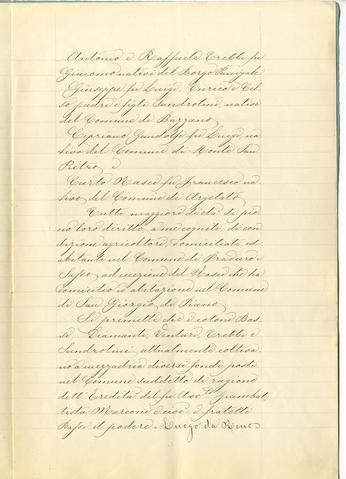 Antonio e Raffaele Trebbi fu
Giacomo nativi del Borgo Panigale
Giuseppe fu Luigi, Enrico e Cel-
so padre e figli Sandrolini, nativi
del Comune di Bazzano
Cipriano Gandolfi fu Luigi, na
tivo del Comune di Monte San
Pietro, e
Carlo Nasci fu Francesco na
tivo del Comune di Argelato
Tutti maggiori di età di pie
no loro diritto, a me cogniti, di con
dizione agricoltori, domiciliati ed
abitanti nel Comune di Praduro e
Sasso, ad eccezione del Nasci che ha
domicilio e abitazione nel Comune
di San Giorgio di Piano
Si premette che i coloni Bas
si, Diamanti, Venturi, Trebbi e
Sandrolini attualmente coltiva
no a mezzadria diversi fondi posti
nel Comune suddetto di ragione
dell' Eredità del fu Avv.to Giambat
tista Marconi e cioè i fratelli
Bassi il podere Luogo da Reno